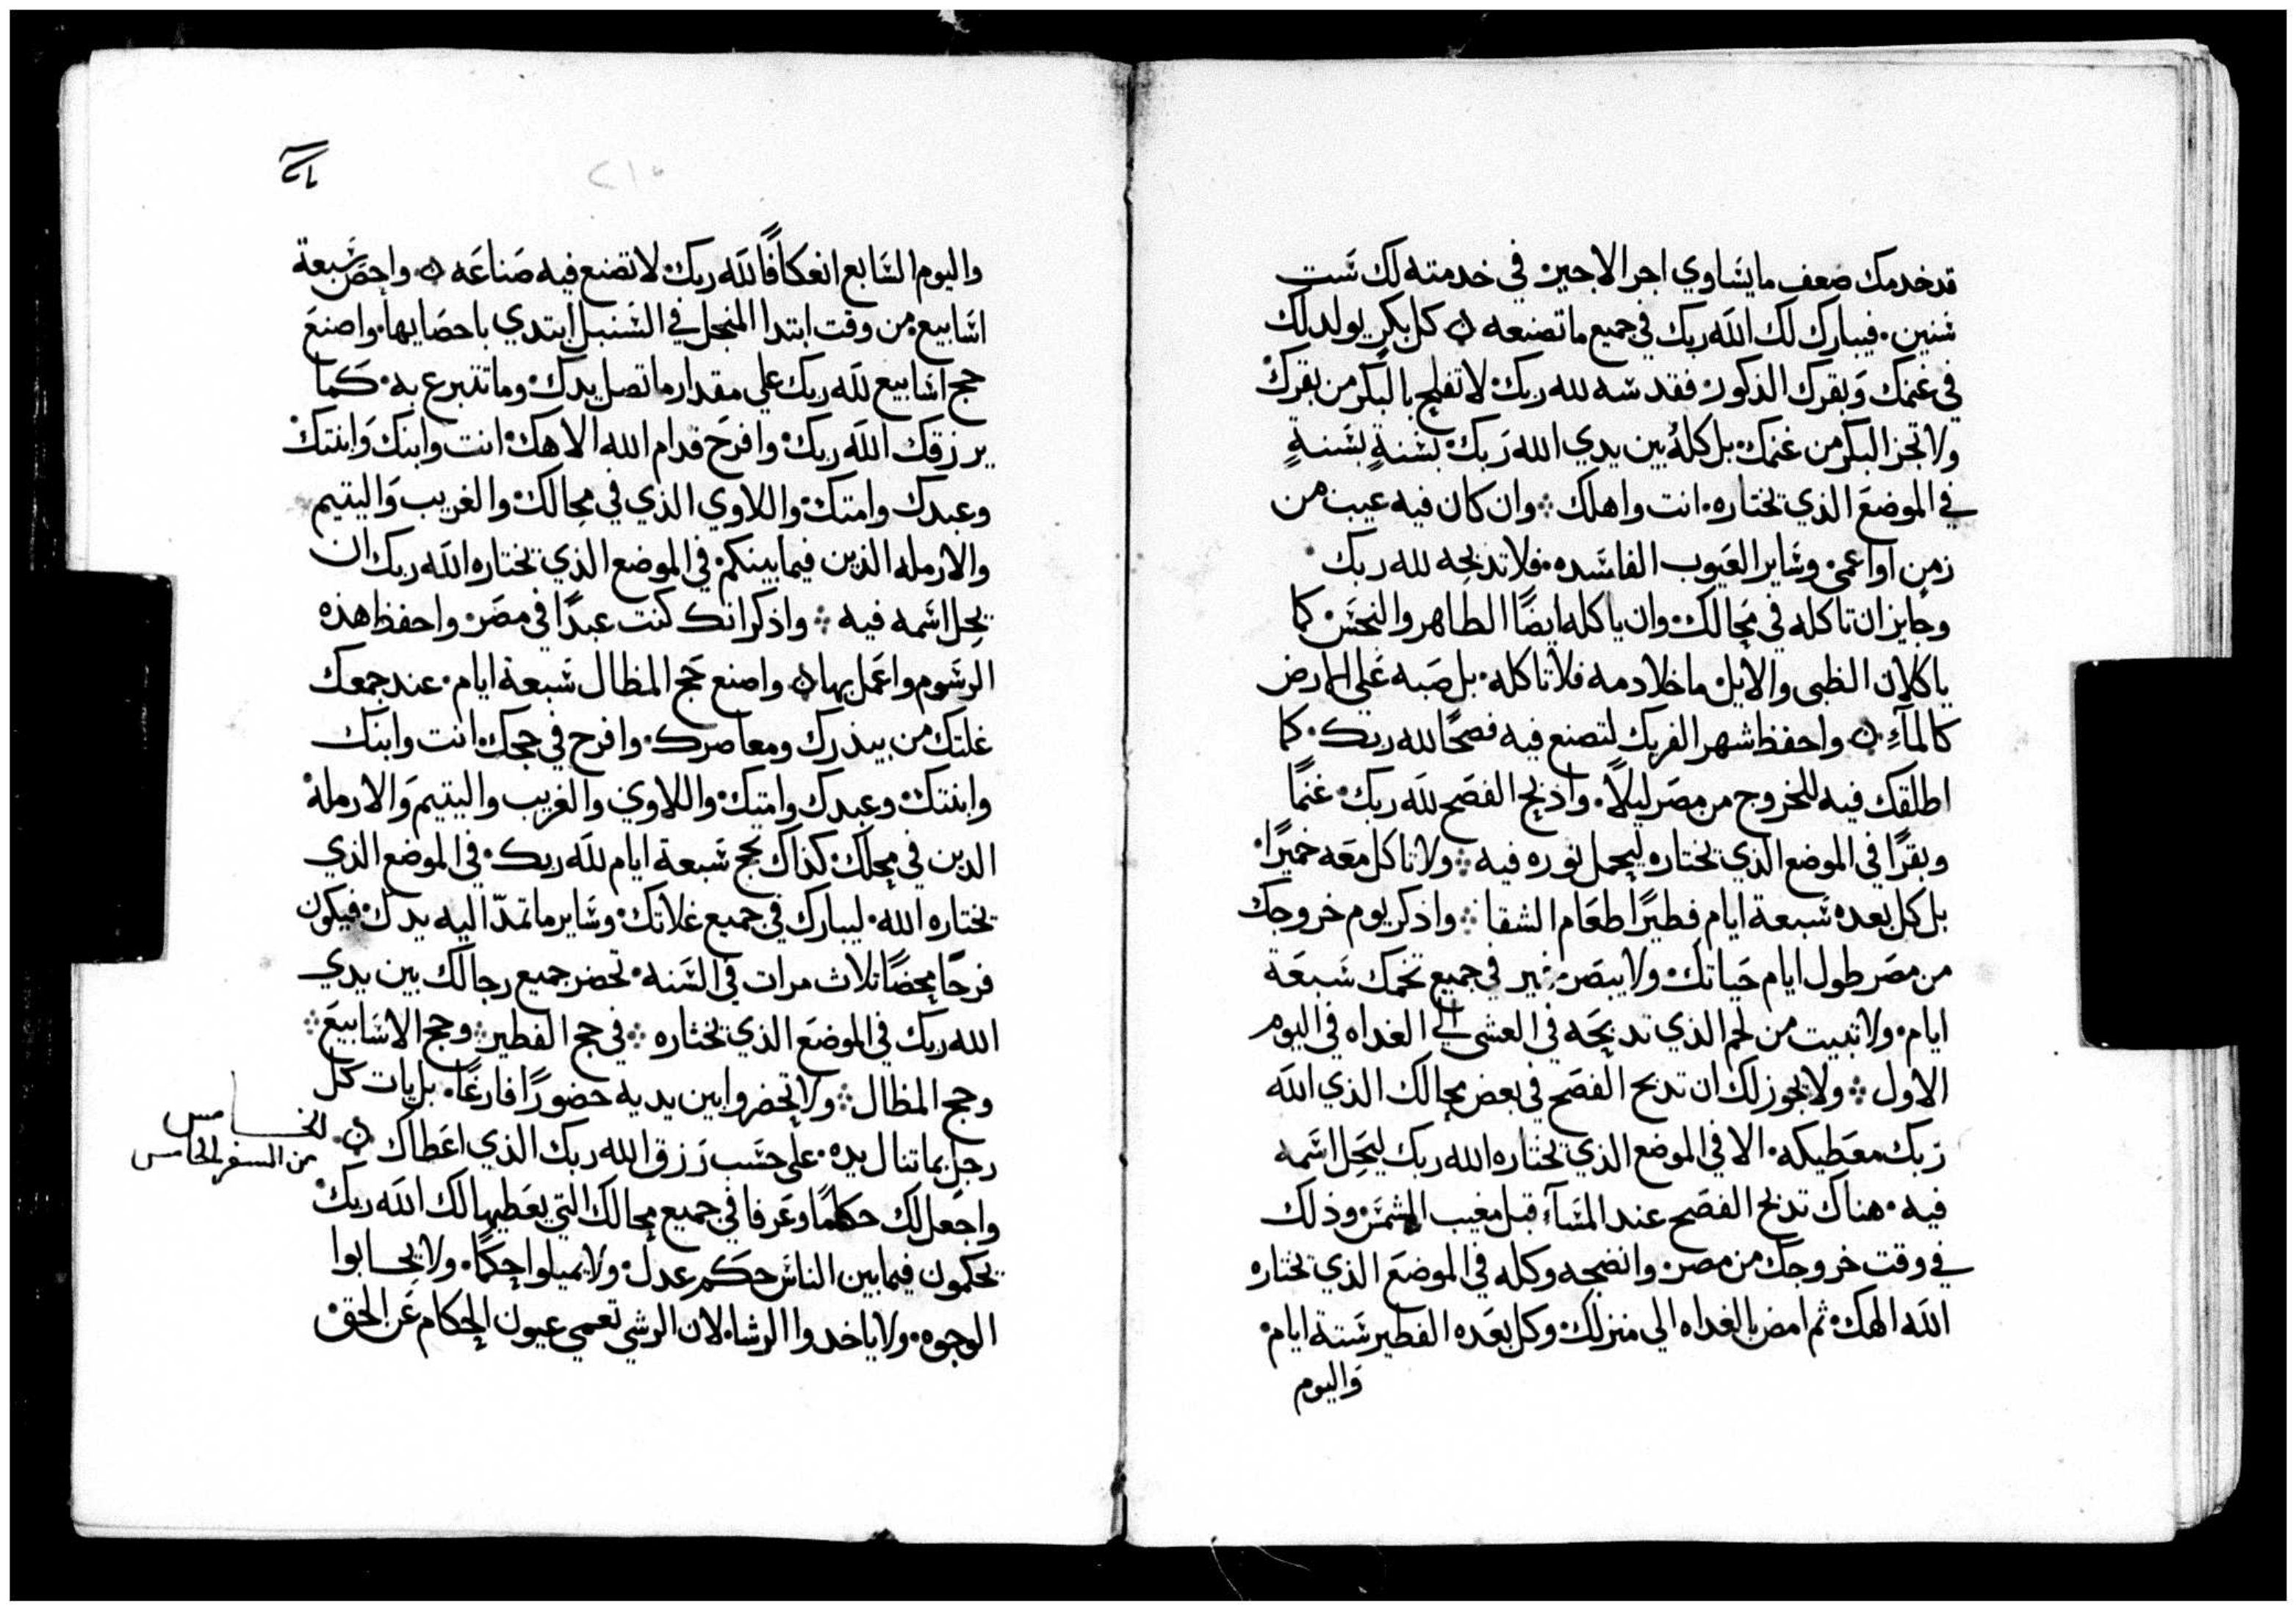 قد خدمك ضعف ما يساوي اجر الاجير في خدمته لك ست
سنين. فيبارك لك الله ربك في جميع ما تصنعه ۞ كل بكر يولد لك
في غنمك وبقرك الذكور فقدسه لله ربك لا تفلح بالبكر من بقرك
ولا تجز البكر من غنمك بل كله بين يدي الله ربك بسنةٍ بسنةٍ
في الموضع الذي تختاره. انت واهلك ⁘ وان كان فيه عيب من
زمن او اعمي وساير العيوب الفاسده. فلا تدبحه لله ربك
وجايز ان تاكله في محالك وان ياكله ايضًا الطاهر والنجس كما
ياكلان الظبي والايل ما خلا دمه فلا تاكله. بل صبه علي الارض
كالمآءِ ۞ واحفظ شهر الفريك لتصنع فيه فصحًا لله ربك. كما
اطلقك فيه للخروج من مصر ليلًا. واذبح الفصح لله ربك غنمًا
وبقرًا في الموضع الذي تختاره ليحل نوره فيه ⁘ ولا تاكل معه خميرًا.
بل كل بعده سبعة ايام فطيرًا طعام الشقا ⁘ واذكر يوم خروجك
من مصر طول ايام حياتك ولا يبصر خمير في جميع تخمك سبعة
ايام. ولا تبيت من لحم الذي تدبحه في العشي الي الغداه في اليوم
الاول ⁘ ولا يجوز لك ان تدبح الفصح في بعض محالك الذي الله
ربك معطيكه. الا في الموضع الذي تختاره الله ربك ليحل اسمه
فيه. هناك تدبح الفصح عند المسآء قبل مغيب الشمس وذلك
في وقت خروجك من مصر وانضجه وكله في الموضع الذي تختاره
الله الهك ثم امض بالغداه الي منزلك وكل بعده الفطير ستة ايام.
واليوم
٢١٠
واليوم السابع انعكافًا لله ربك لا تصنع فيه صناعه ۞ واحص سبعة
اسابيع من وقت ابتدا المنجل في السنبل ابتدي باحصايها. واصنع
حج اسابيع لله ربك علي مقدار ما تصل يدك وما تتبرع به. كما
يرزقك الله ربك وافرح قدام الله الاهك انت وابنك وابنتك
وعبدك وامتك واللاوي الذي في محالك والغريب واليتيم
والارمله الذين فيما بينكم في الموضع الذي تختاره الله ربك ان
يحل اسمه فيه ⁘ واذكر انك كنت عبدًا في مصر واحفظ هذه
الرسوم واعمل بها ۞ واصنع حج المظال سبعة ايام. عند جمعك
غلتك من بيدرك ومعاصرك. وافرح في حجك انت وابنك
وابنتك وعبدك وامتك واللاوي والغريب واليتيم والارملة
الدين في محلك كذاك تحج سبعة ايام لله ربك. في الموضع الذي
تختاره الله. ليبارك في جميع غلاتك وساير ما تمدّ اليه يدك فيكون
فرحًا محضًا تلاث مرات في السنه. تحضر جميع رجالك بين يدي
الله ربك في الموضع الذي تختاره ⁘ في حج الفطير ⁘ وحج الاسابيع ⁘
وحج المظال ⁘ ولا تحضروا بين يديه حضورًا فارغًا. بل يات كل
رجل بما تنال يده. علي حسب رزق الله ربك الذي اعطاك ۞
الخامس
من السفر الخامس
واجعل لك حكامًا وعرفا في جميع محالك التي يعطيها لك الله ربك
يحكمون فيما بين الناس حكم عدل ولا يميلوا حكمًا. ولا يحابوا
الوجوه. ولا ياخدوا الرشا. لان الرشي تعمي عيون الحكام عن الحق